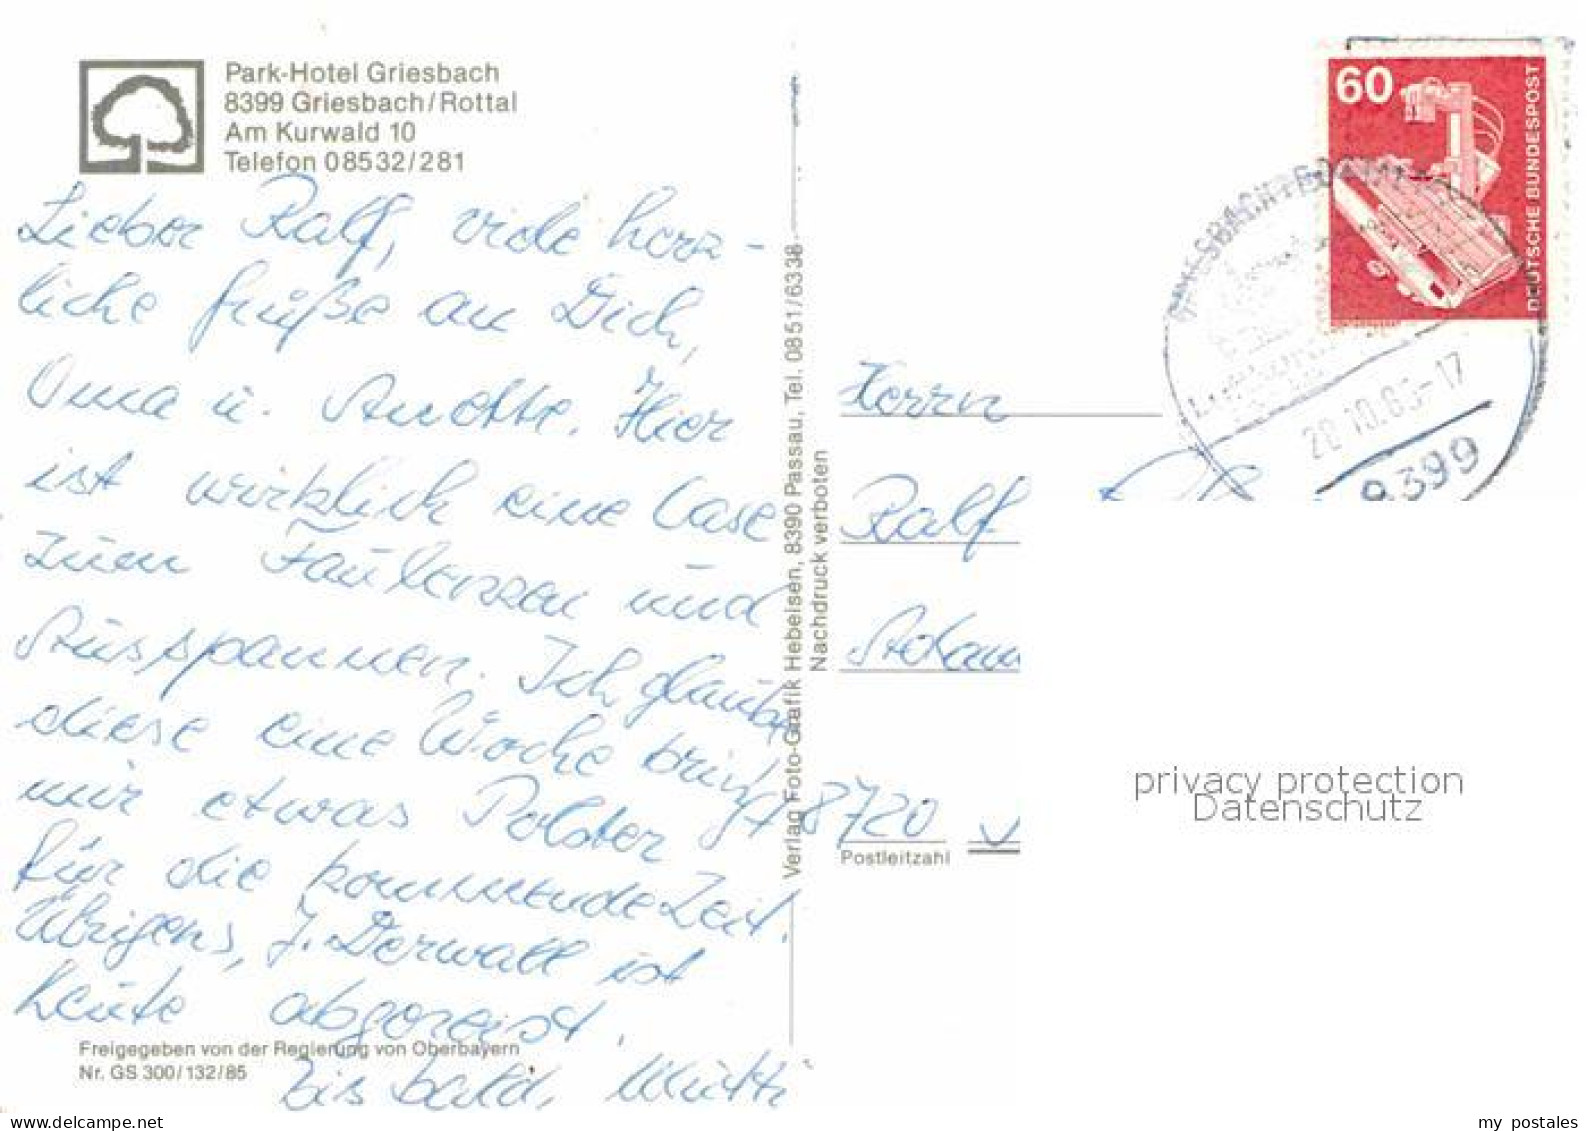 Park-Hotel Griesbach
8399 Griesbach/Rottal
Am Kurwald 10
Telefon 08532/281
Lieber Ralf, viele herz-
liche Grüße an Dich,
Oma u. Anette. Hier
ist wirklich eine Oase
zum Faulenzen und
Ausspannen. Ich glaube
diese eine Woche bringt
mir etwas Polster
für die kommende Zeit.
Übrigens, J. Derwall ist
heute abgereist.
Bis bald, Mutti
Freigegeben von der Regierung von Oberbayern
Nr. GS 300/132/85
Verlag Foto-Grafik Hebeisen, 8390 Passau, Tel. 0851/6338
Nachdruck verboten
60
DEUTSCHE BUNDESPOST
8399
Herrn
Ralf
8720
Postleitzahl
privacy protection
Datenschutz
my postales